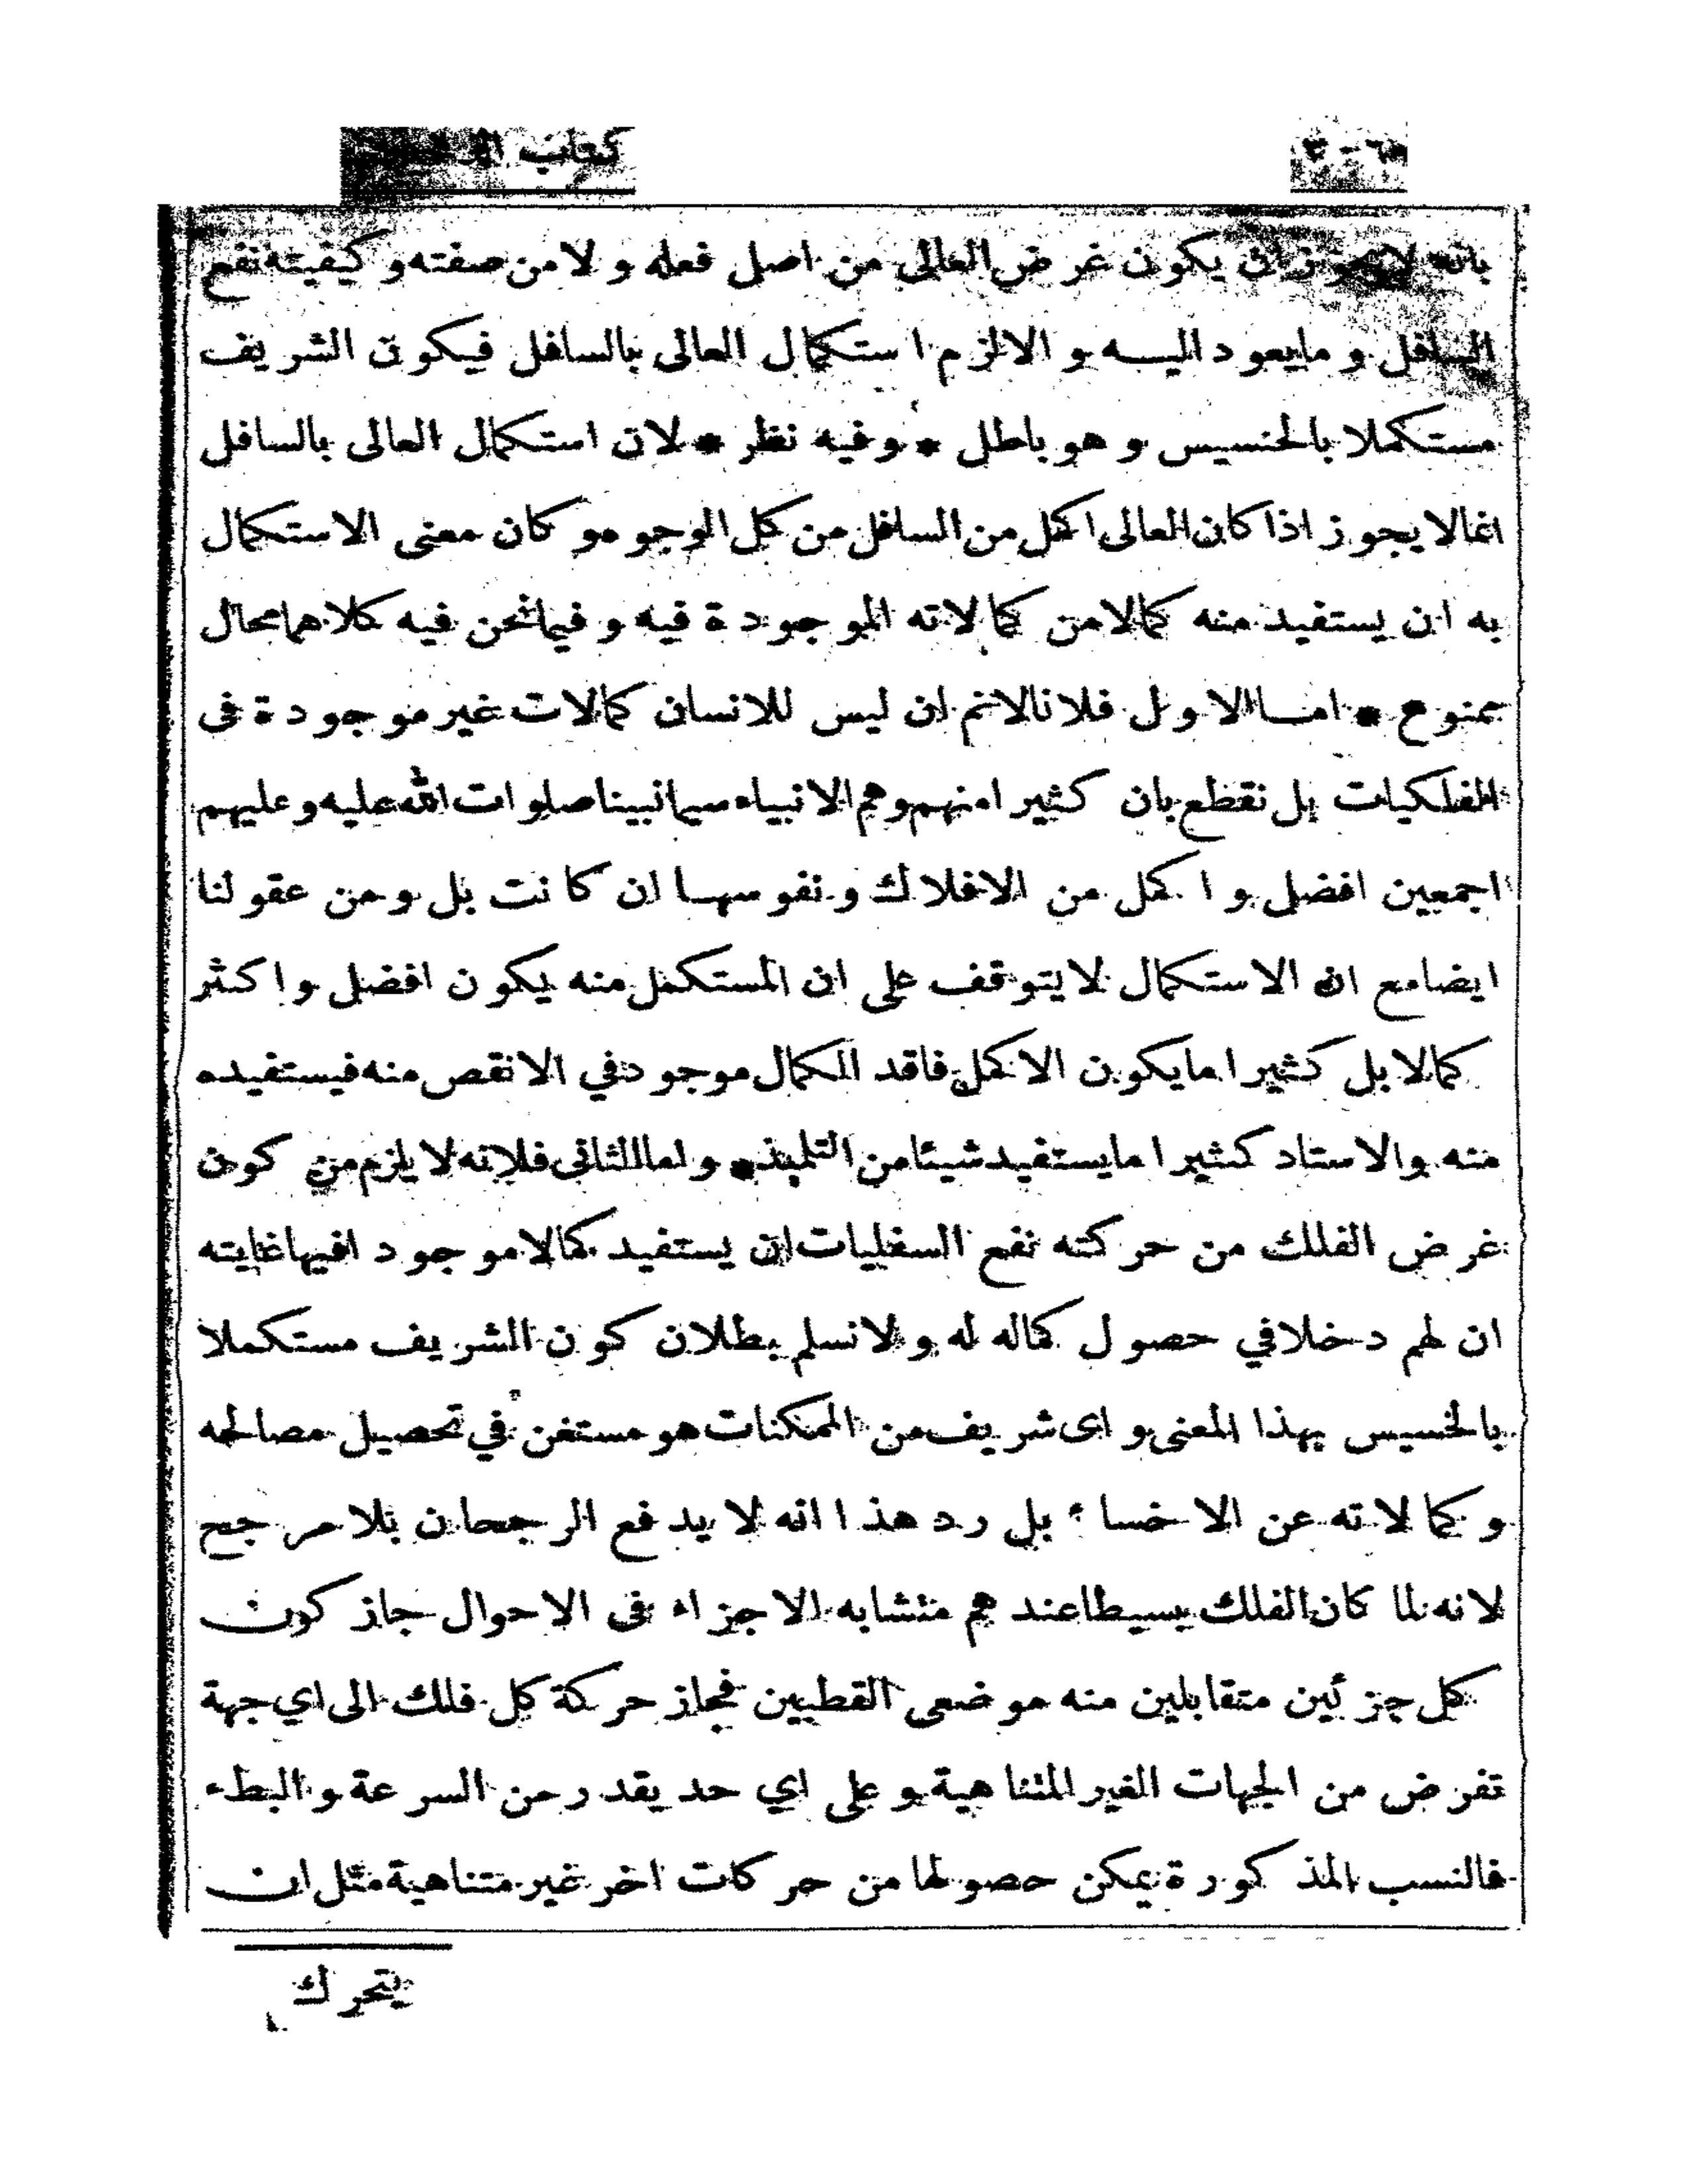 كتاب
بانه لايجوز ان يكون غرض العالى من اصل فعله و لا من صفته و كيفيته نفع
السافل و مايعود اليه و الا لزم استكمال العالى بالسافل فيكون الشريف
مستكملا بالخسيس و هو باطل * و فيه نظر * لان استكمال العالى بالسافل
انما لايجوز اذا كان العالى اكمل من السافل من كل الوجوه و كان معنى الاستكمال
به ان يستفيد منه كمالا من كمالاته الموجودة فيه و فيما نحن فيه كلاهما محال
ممنوع * اما الاول فلانا لانم ان ليس للانسان كمالات غير موجودة فى
الفلكيات بل نقطع بان كثيرا منهم و هم الانبياء سيما نبينا صلوات الله عليه و عليهم
اجمعين افضل و اكمل من الافلاك و نفوسها ان كانت بل و من عقولنا
ايضا مع ان الاستكمال لايتوقف على ان المستكمل منه يكون افضل و اكثر
كمالا بل كثيرا مايكون الاكمل فاقد الكمال موجود في الانقص منه فيستفيده
منه و الاستاد كثيرا مايستفيد شيئا من التلميذ * و اما الثانى فلانه لا يلزم من كون
غرض الفلك من حركته نفع السفليات ان يستفيد كمالا موجودا فيها غايته
ان لهم دخلا في حصول كماله له و لا نسلم بطلان كون الشريف مستكملا
بالخسيس بهذا المعنى و اى شريف من الممكنات هو مستغن في تحصيل مصالحه
و كمالاته عن الاخساء بل رد هذا انه لا يدفع الرجحان بلا مرجح
لانه لما كان الفلك بسيطا عندهم متشابه الاجزاء فى الاحوال جاز كون
كل جزئين متقابلين منه موضعى القطبين فجاز حركة كل فلك الى اي جهة
تفرض من الجهات الغير المتناهية و على اي حد يقدر من السرعة و البطء
فالنسب المذكورة يمكن حصولها من حركات اخر غير متناهية مثل ان
يتحرك